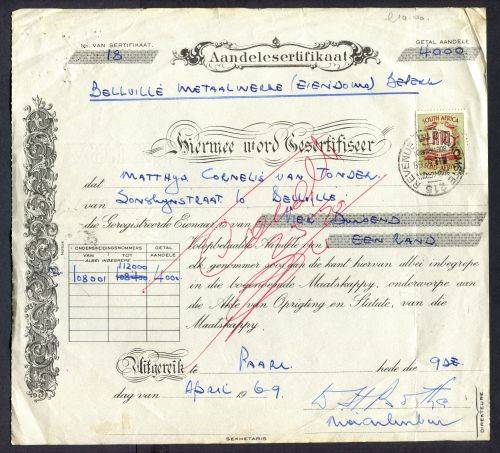 £10.00.
Nr. VAN SERTIFIKAAT.
18
Aandelesertifikaat
GETAL AANDELE
4000
BELLVILLE METAALWERKE (EIENDOMS) BEPERK
SOUTH AFRICA
Hiermee word Gesertifiseer
dat MATTHYS CORNELIS VAN TONDER
van SONSKYNSTRAAT 10 BELLVILLE
die Geregistreerde Eienaar is van VIER DUISEND
Volopbetaalde Aandele van EEN RAND
ONDERSKEIDINGSNOMMERS GETAL AANDELE
VAN TOT
ALBEI INBEGREPE
108001 112000 4000
108400
elk, genommer soos aan die kant hiervan albei inbegrepe
in die bogenoemde Maatskappy, onderworpe aan
die Akte van Oprigting en Statute, van die
Maatskappy.
Uitgereik te PAARL hede die 9DE
dag van APRIL 1969
DIREKTEURE
SEKRETARIS